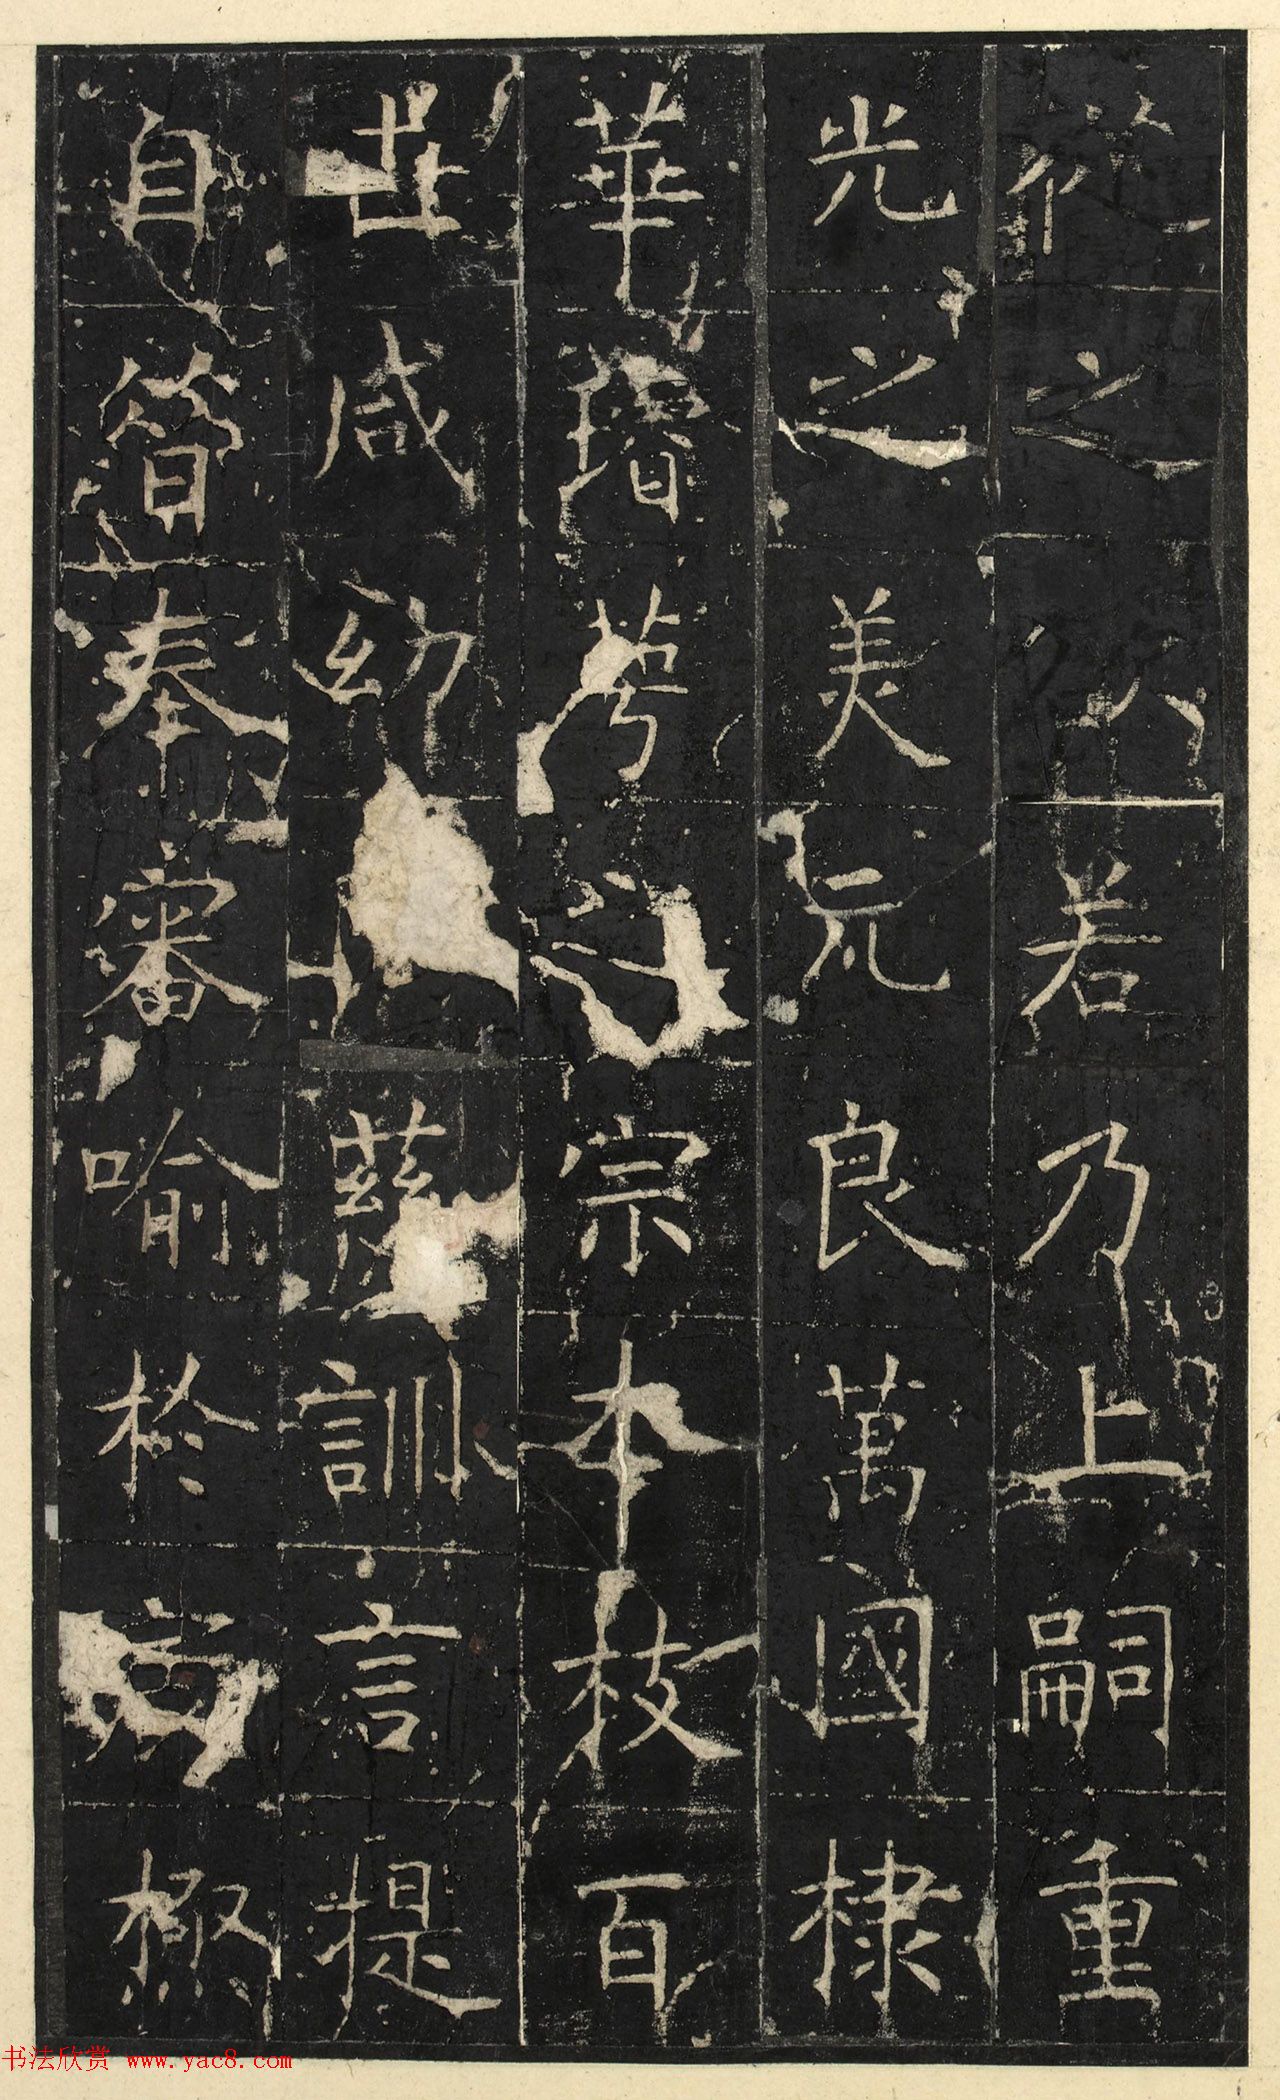 從之必若乃上嗣重
光之美元良萬國棣
華增萼之宗本枝百
世咸幼慈訓言提
自簪奉審喻於宸極
书法欣赏 www.yac8.com